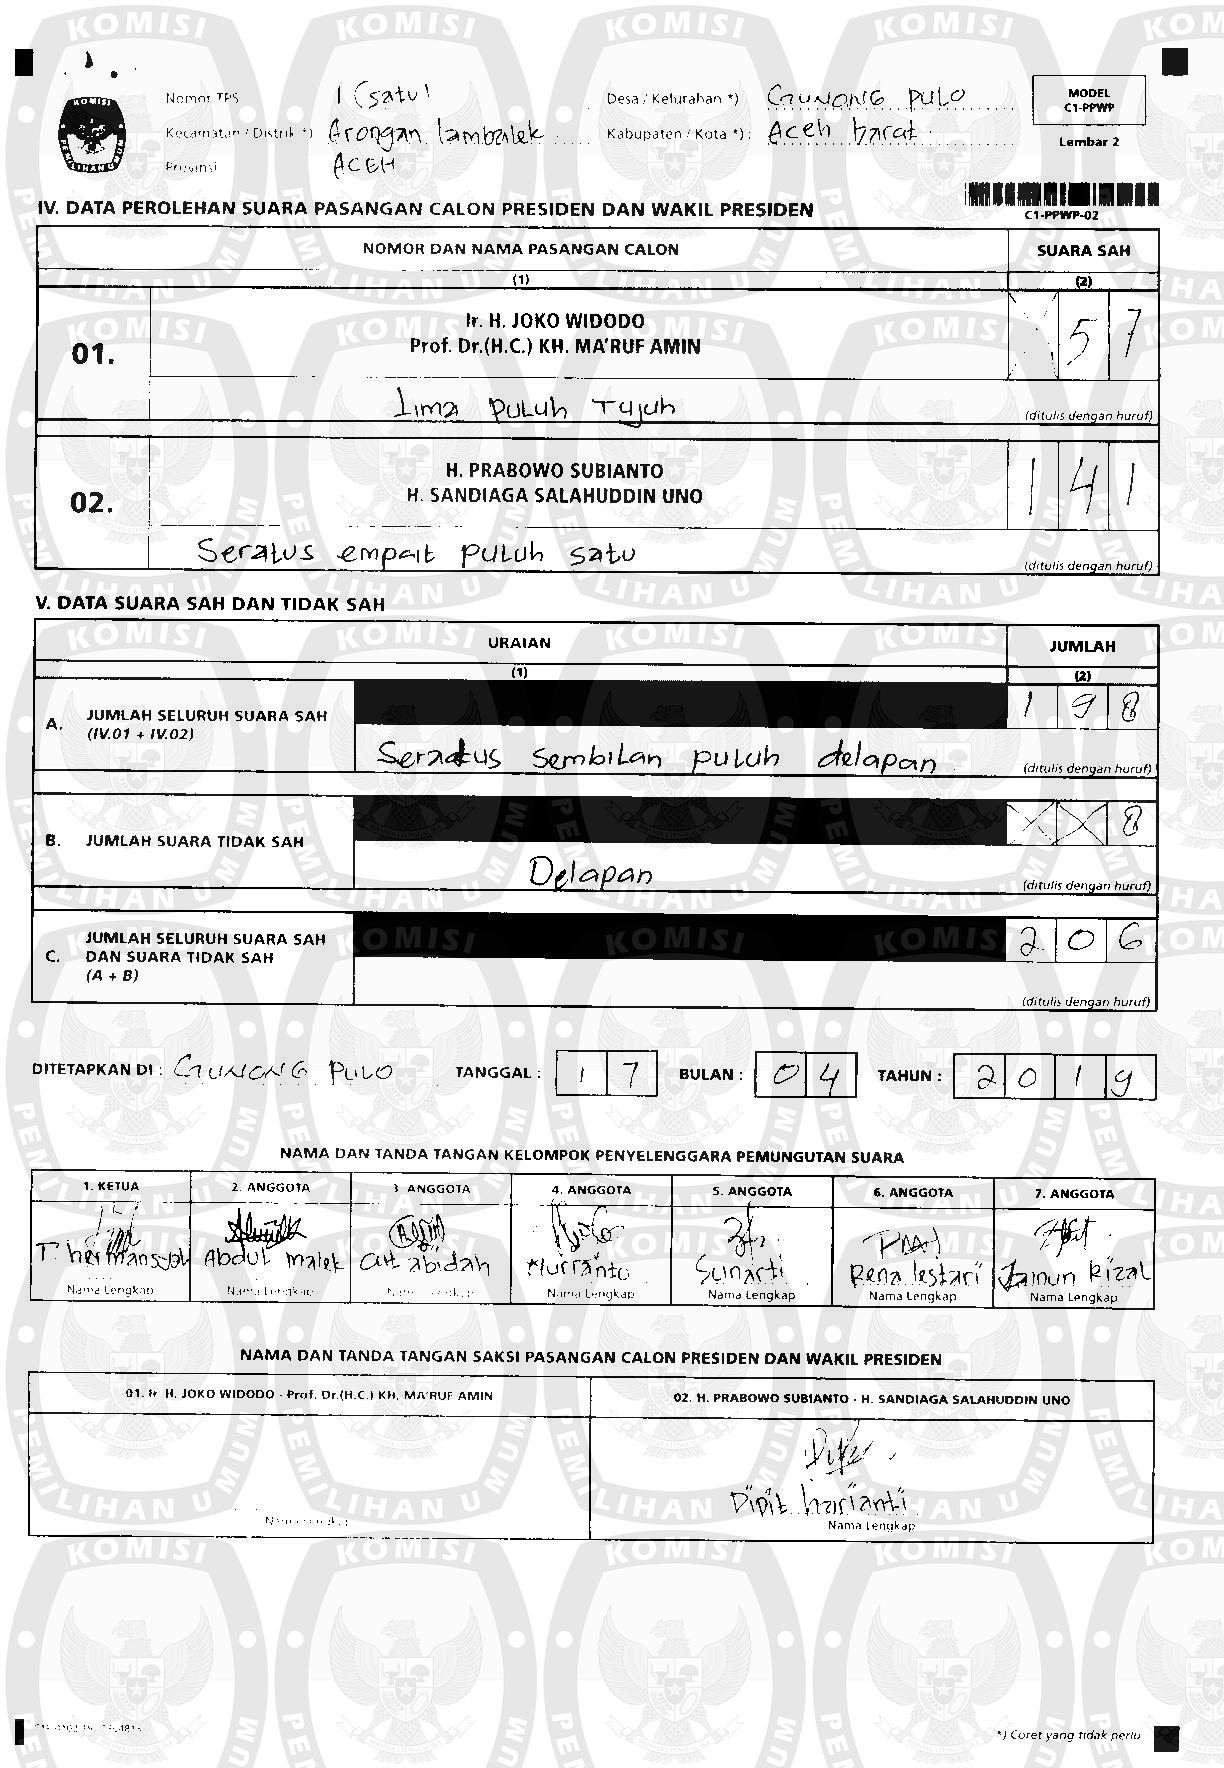 Nomor TPS 1 (satu) Desa / Kelurahan *) GUNONG PULO
Kecamatan / Distrik *) Arongan lambalek Kabupaten / Kota *) : Aceh barat
Provinsi ACEH
MODEL
C1-PPWP
Lembar 2
KOMISI
PEMILIHAN UMUM
IV. DATA PEROLEHAN SUARA PASANGAN CALON PRESIDEN DAN WAKIL PRESIDEN
C1-PPWP-02
NOMOR DAN NAMA PASANGAN CALON SUARA SAH
(1) (2)
01. Ir. H. JOKO WIDODO
Prof. Dr.(H.C.) KH. MA'RUF AMIN
X 5 7
Lima puluh Tujuh (ditulis dengan huruf)
02. H. PRABOWO SUBIANTO
H. SANDIAGA SALAHUDDIN UNO
1 4 1
Seratus empat puluh satu (ditulis dengan huruf)
V. DATA SUARA SAH DAN TIDAK SAH
URAIAN JUMLAH
(1) (2)
A. JUMLAH SELURUH SUARA SAH
(IV.01 + IV.02)
1 9 8
Seratus sembilan puluh delapan (ditulis dengan huruf)
B. JUMLAH SUARA TIDAK SAH
X X 8
Delapan (ditulis dengan huruf)
C. JUMLAH SELURUH SUARA SAH
DAN SUARA TIDAK SAH
(A + B)
2 0 6
(ditulis dengan huruf)
DITETAPKAN DI : GUNONG PULO TANGGAL : 1 7 BULAN : 0 4 TAHUN : 2 0 1 9
NAMA DAN TANDA TANGAN KELOMPOK PENYELENGGARA PEMUNGUTAN SUARA
1. KETUA 2. ANGGOTA 3. ANGGOTA 4. ANGGOTA 5. ANGGOTA 6. ANGGOTA 7. ANGGOTA
T. hermansyah Abdul malek Cut abidah Nurranto Sunarti Rena lestari Jainun Rizal
Nama Lengkap Nama Lengkap Nama Lengkap Nama Lengkap Nama Lengkap Nama Lengkap Nama Lengkap
NAMA DAN TANDA TANGAN SAKSI PASANGAN CALON PRESIDEN DAN WAKIL PRESIDEN
01. Ir. H. JOKO WIDODO - Prof. Dr.(H.C.) KH. MA'RUF AMIN 02. H. PRABOWO SUBIANTO - H. SANDIAGA SALAHUDDIN UNO
Dipit harianti
Nama Lengkap Nama Lengkap
*) Coret yang tidak perlu